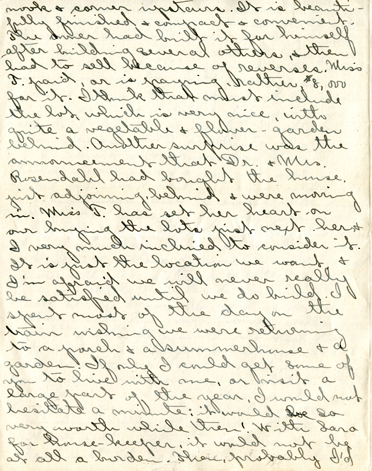 nook & corner upstairs. It is beauti-
fully finished & compact & convenient.
The owner had built it for himself
after building several others, & then
had to sell because of reverses. Miss
T. paid, or is paying, rather, $8,000
for it. I think that must include
the lot, which is very nice, with
quite a vegetable & flower-garden
behind. Another surprise was the
announcement that Dr. & Mrs.
Rosendahl had bought the house
just adjoining behind & were moving
in. Miss T. has set her heart on
our buying the lots just next her &
I very much inclined to consider it.
It is just the location we want &
I'm afraid we will never really
be satisfied until we do build. I
spent most of the day on the
train wishing we were returning
to a porch & a summerhouse & a
garden. If only I could get some of
you to live with me, or visit a
large part of the year, I would not
hesitate a minute: it would be so
very worth while then! With Sara
for house-keeper, it would not be
at all a burden. Then, probably I'd